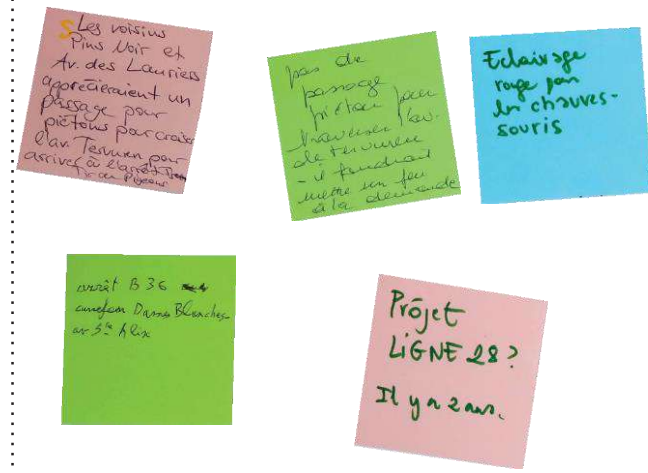 S Les voisins
Pins Noir et
Av. des Lauriers
apprécieraient un
passage pour
piétons pour croiser
l'av. Tervuren pour
arriver à l'arrêt Tram
pas de
passage
piéton pour
traverser l'av.
de tervuren
- il faudrait
mettre un feu
à la demande
Eclairage
rouge pour
les chauves-
souris
arrêt B 36
carrefour Dames Blanches
av Ste Alix
Projet
LIGNE 28?
Il y a 2 ans.